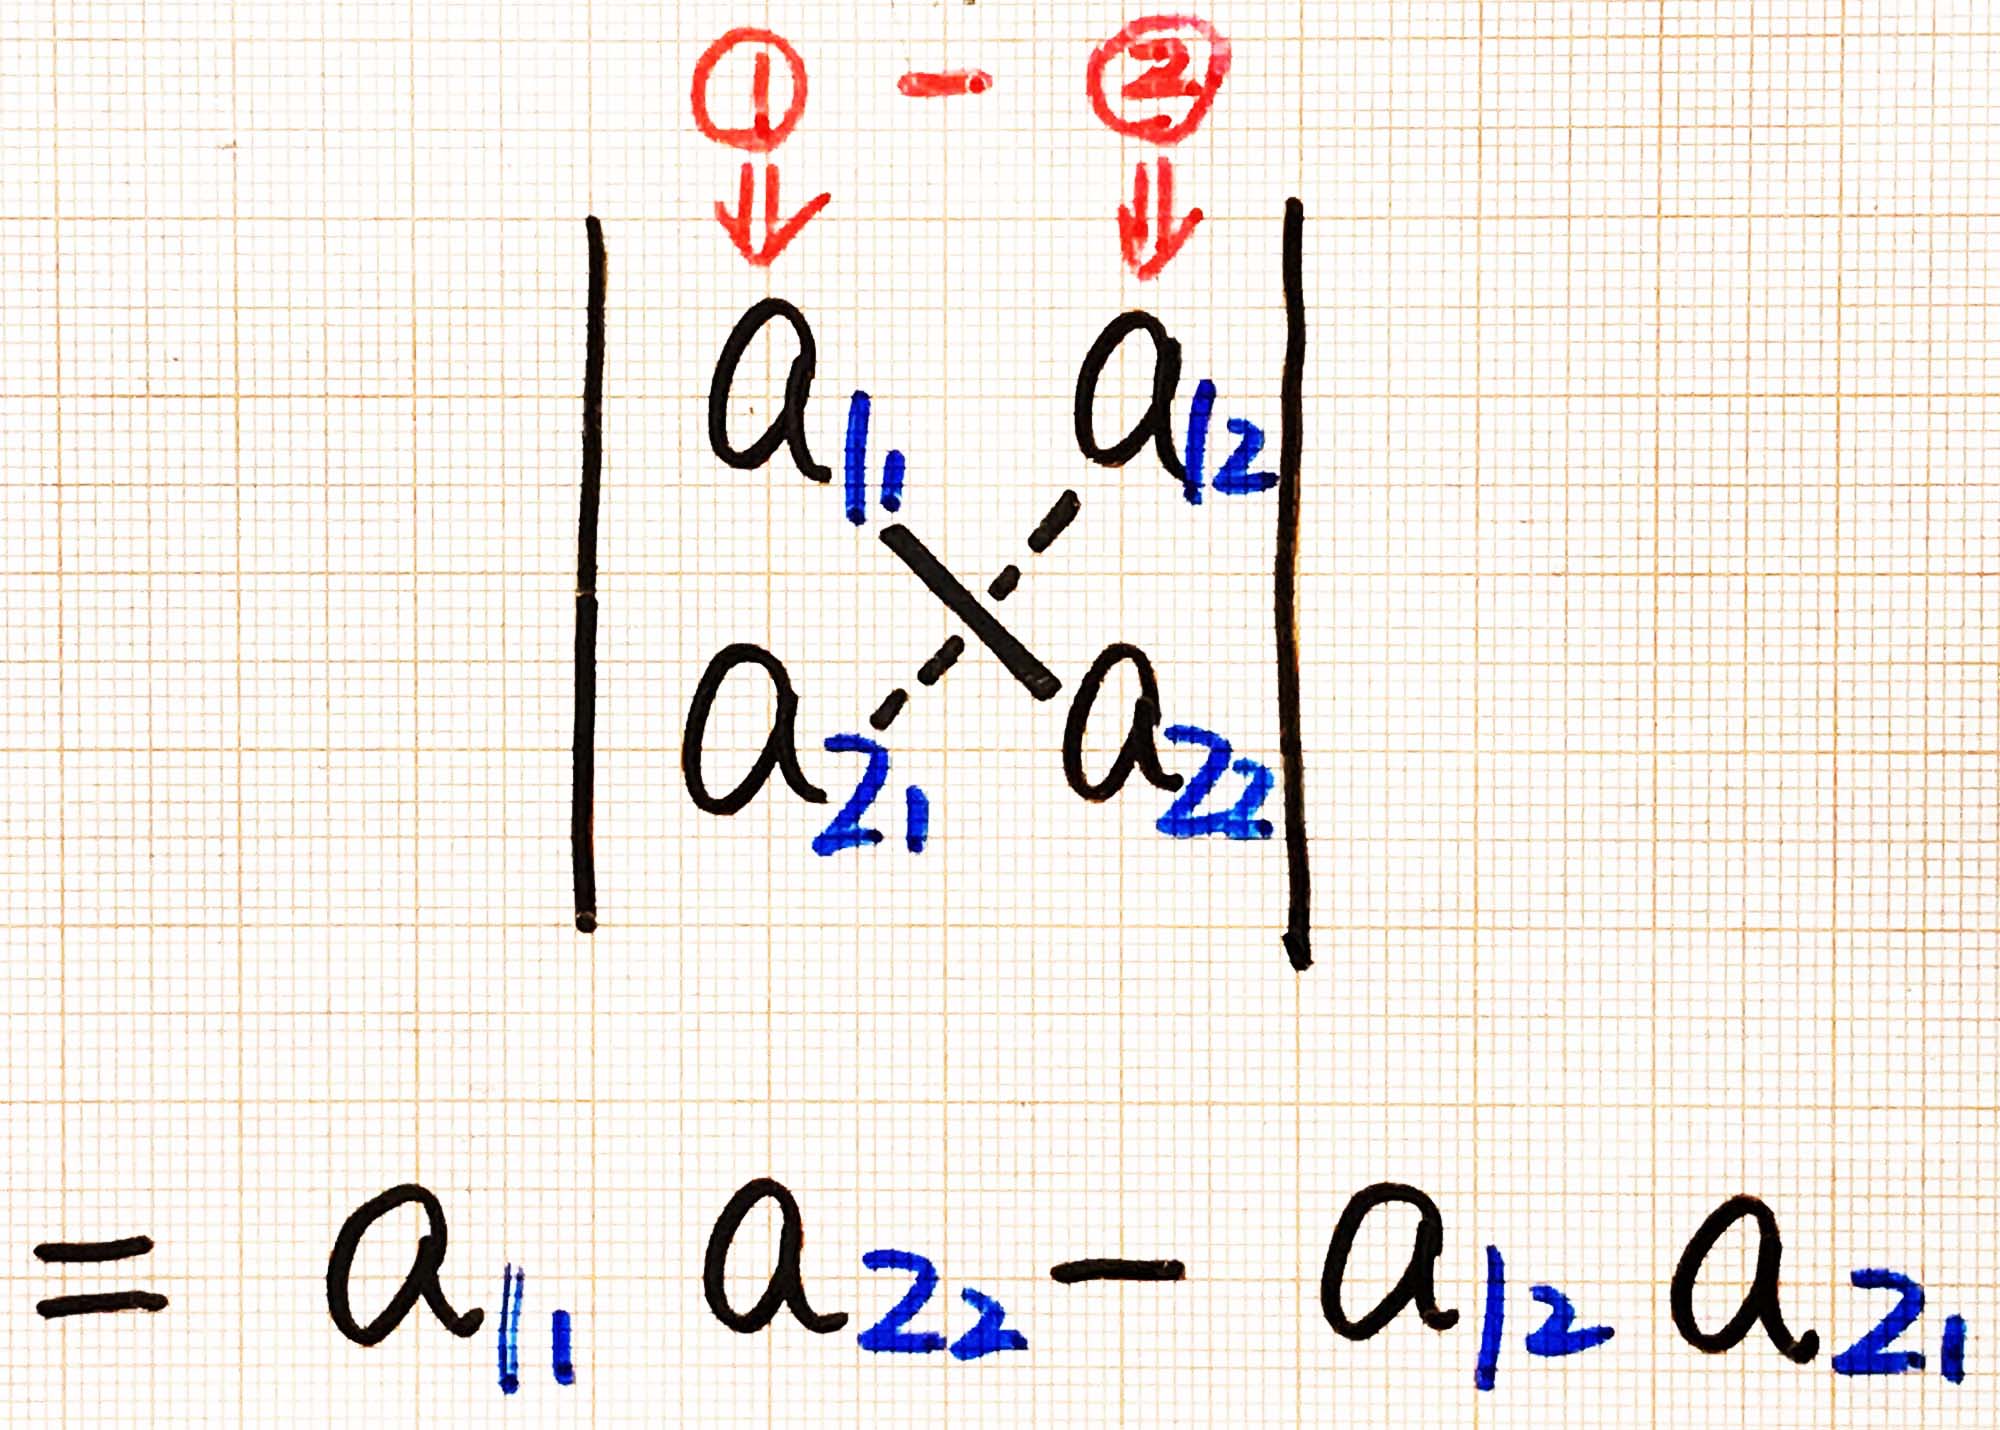 ① - ②
a₁₁ a₁₂
a₂₁ a₂₂
= a₁₁ a₂₂ - a₁₂ a₂₁